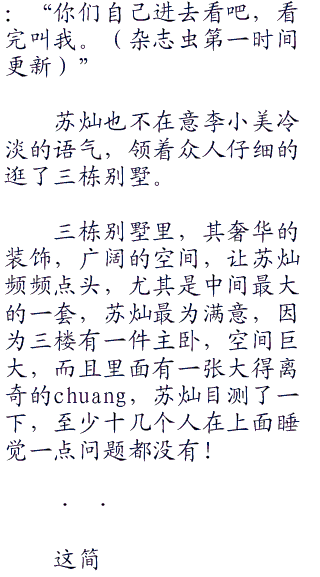 ：“你们自己进去看吧，看
完叫我。（杂志虫第一时间
更新）”
苏灿也不在意李小美冷
淡的语气，领着众人仔细的
逛了三栋别墅。
三栋别墅里，其奢华的
装饰，广阔的空间，让苏灿
频频点头，尤其是中间最大
的一套，苏灿最为满意，因
为三楼有一件主卧，空间巨
大，而且里面有一张大得离
奇的chuang，苏灿目测了一
下，至少十几个人在上面睡
觉一点问题都没有！
．．
这简